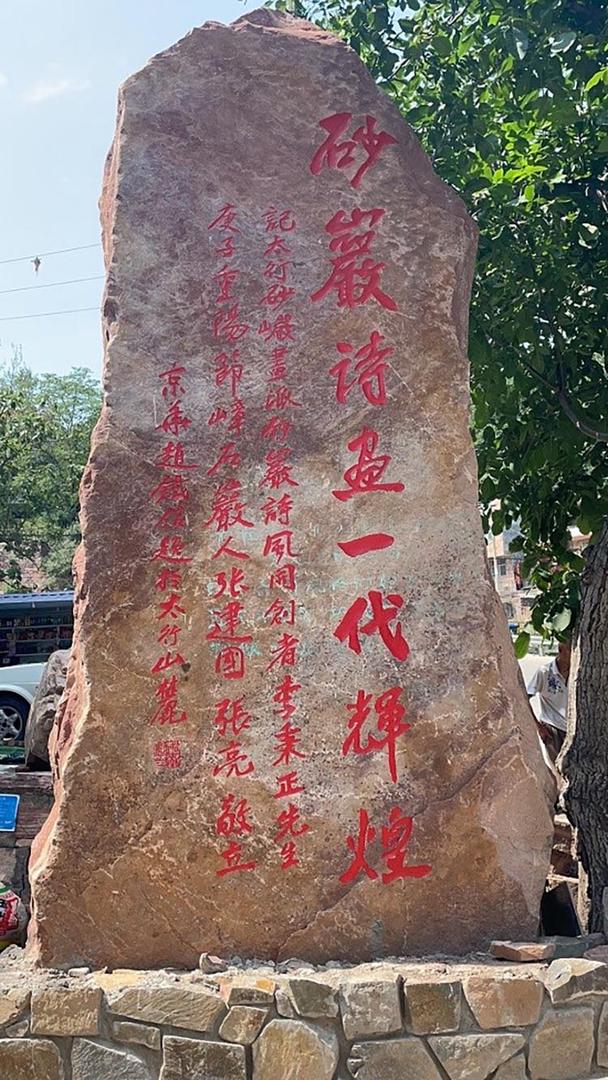 砂巖诗画一代辉煌
記太行砂巖畫派砂巖詩风開創者李秉正先生
庚子重陽節峰石巖人张建国 張亮 敬立
京華趙鐵信題於太行山麓